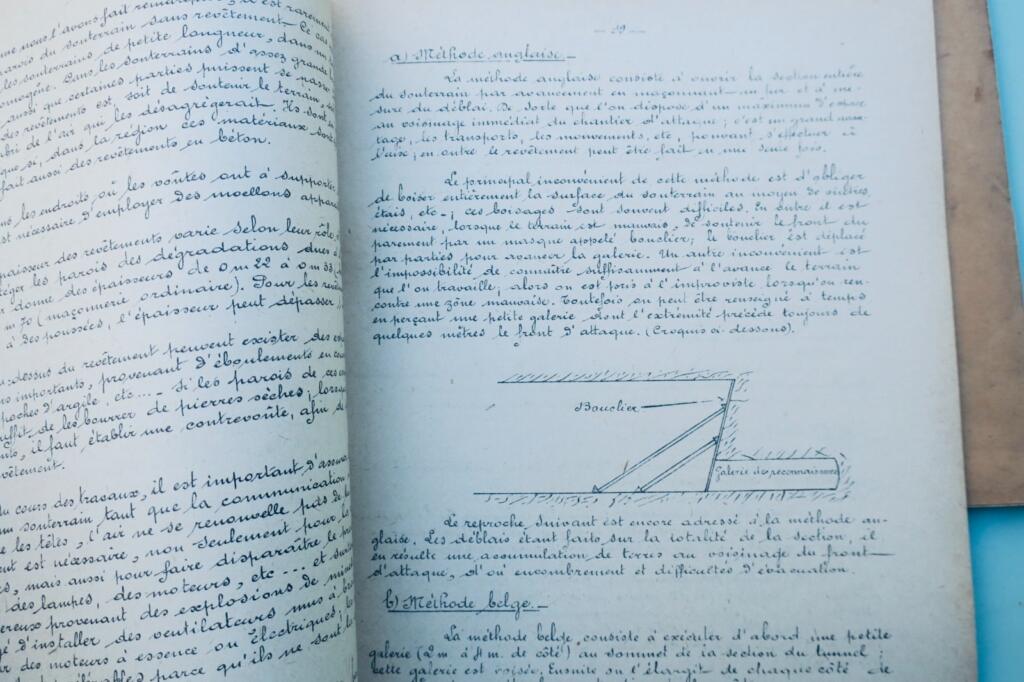 parois du souterrain sans revêtement. Ce cas
les souterrains de petite longueur, dans un
homogène. Dans les souterrains d'assez grande
aussi que certaines parties puissent se passer
des revêtements est, soit de soutenir le terrain, soit
l'abri de l'air qui les désagrégerait. Ils sont
que si, dans la région ces matériaux sont
fait aussi des revêtements en béton.
les endroits où les voûtes ont à supporter
est nécessaire d'employer des moellons
épaisseur des revêtements varie selon leur rôle,
protéger les parois des dégradations dues à
donne des épaisseurs de 0m22 à 0m33
m70 (maçonnerie ordinaire). Pour les
à des poussées, l'épaisseur peut dépasser
dessus du revêtement peuvent exister des
importants, provenant d'éboulements en
poches d'argile, etc... Si les parois de ces
suffit de les bourrer de pierres sèches; lorsque
il faut établir une contrevoûte, afin de
revêtement.
cours des travaux, il est important d'assurer
souterrain tant que la communication
les têtes, l'air ne se renouvelle pas de
est nécessaire, non seulement pour
mais aussi pour faire disparaître le
des lampes, des moteurs, etc... et
provenant des explosions de mines
d'installer des ventilateurs mus à
des moteurs à essence ou électriques;
parce qu'ils ne sont
— 39 —
a) Méthode anglaise.—
La méthode anglaise consiste à ouvrir la section entière
du souterrain par avancement en maçonnant au fur et à me-
sure du déblai. De sorte que l'on dispose d'un maximum d'espace
au voisinage immédiat du chantier d'attaque; c'est un grand avan-
tage, les transports, les mouvements, etc, pouvant s'effectuer à
l'aise; en outre le revêtement peut être fait en une seule fois.
Le principal inconvénient de cette méthode est d'obliger
de boiser entièrement la surface du souterrain au moyen de cintres,
étais, etc-; ces boisages sont souvent difficiles. En outre il est
nécessaire, lorsque le terrain est mauvais, de soutenir le front du
parement par un masque appelé bouclier; le bouclier est déplacé
par parties pour avancer la galerie. Un autre inconvénient est
l'impossibilité de connaître suffisamment à l'avance le terrain
que l'on travaille; alors on est pris à l'improviste lorsqu'on ren-
contre une zône mauvaise. Toutefois on peut être renseigné à temps
en perçant une petite galerie dont l'extrémité précède toujours de
quelques mètres le front d'attaque. (Croquis ci-dessous).
Bouclier
Galerie de reconnaissance
Le reproche suivant est encore adressé à la méthode an-
glaise. Les déblais étant faits sur la totalité de la section, il
en résulte une accumulation de terres au voisinage du front
d'attaque, d'où encombrement et difficultés d'évacuation.
b) Méthode belge.—
La méthode belge, consiste à exécuter d'abord une petite
galerie (2m à 4m. de côté) au sommet de la section du tunnel;
cette galerie est boisée. Ensuite on l'élargit de chaque côté de